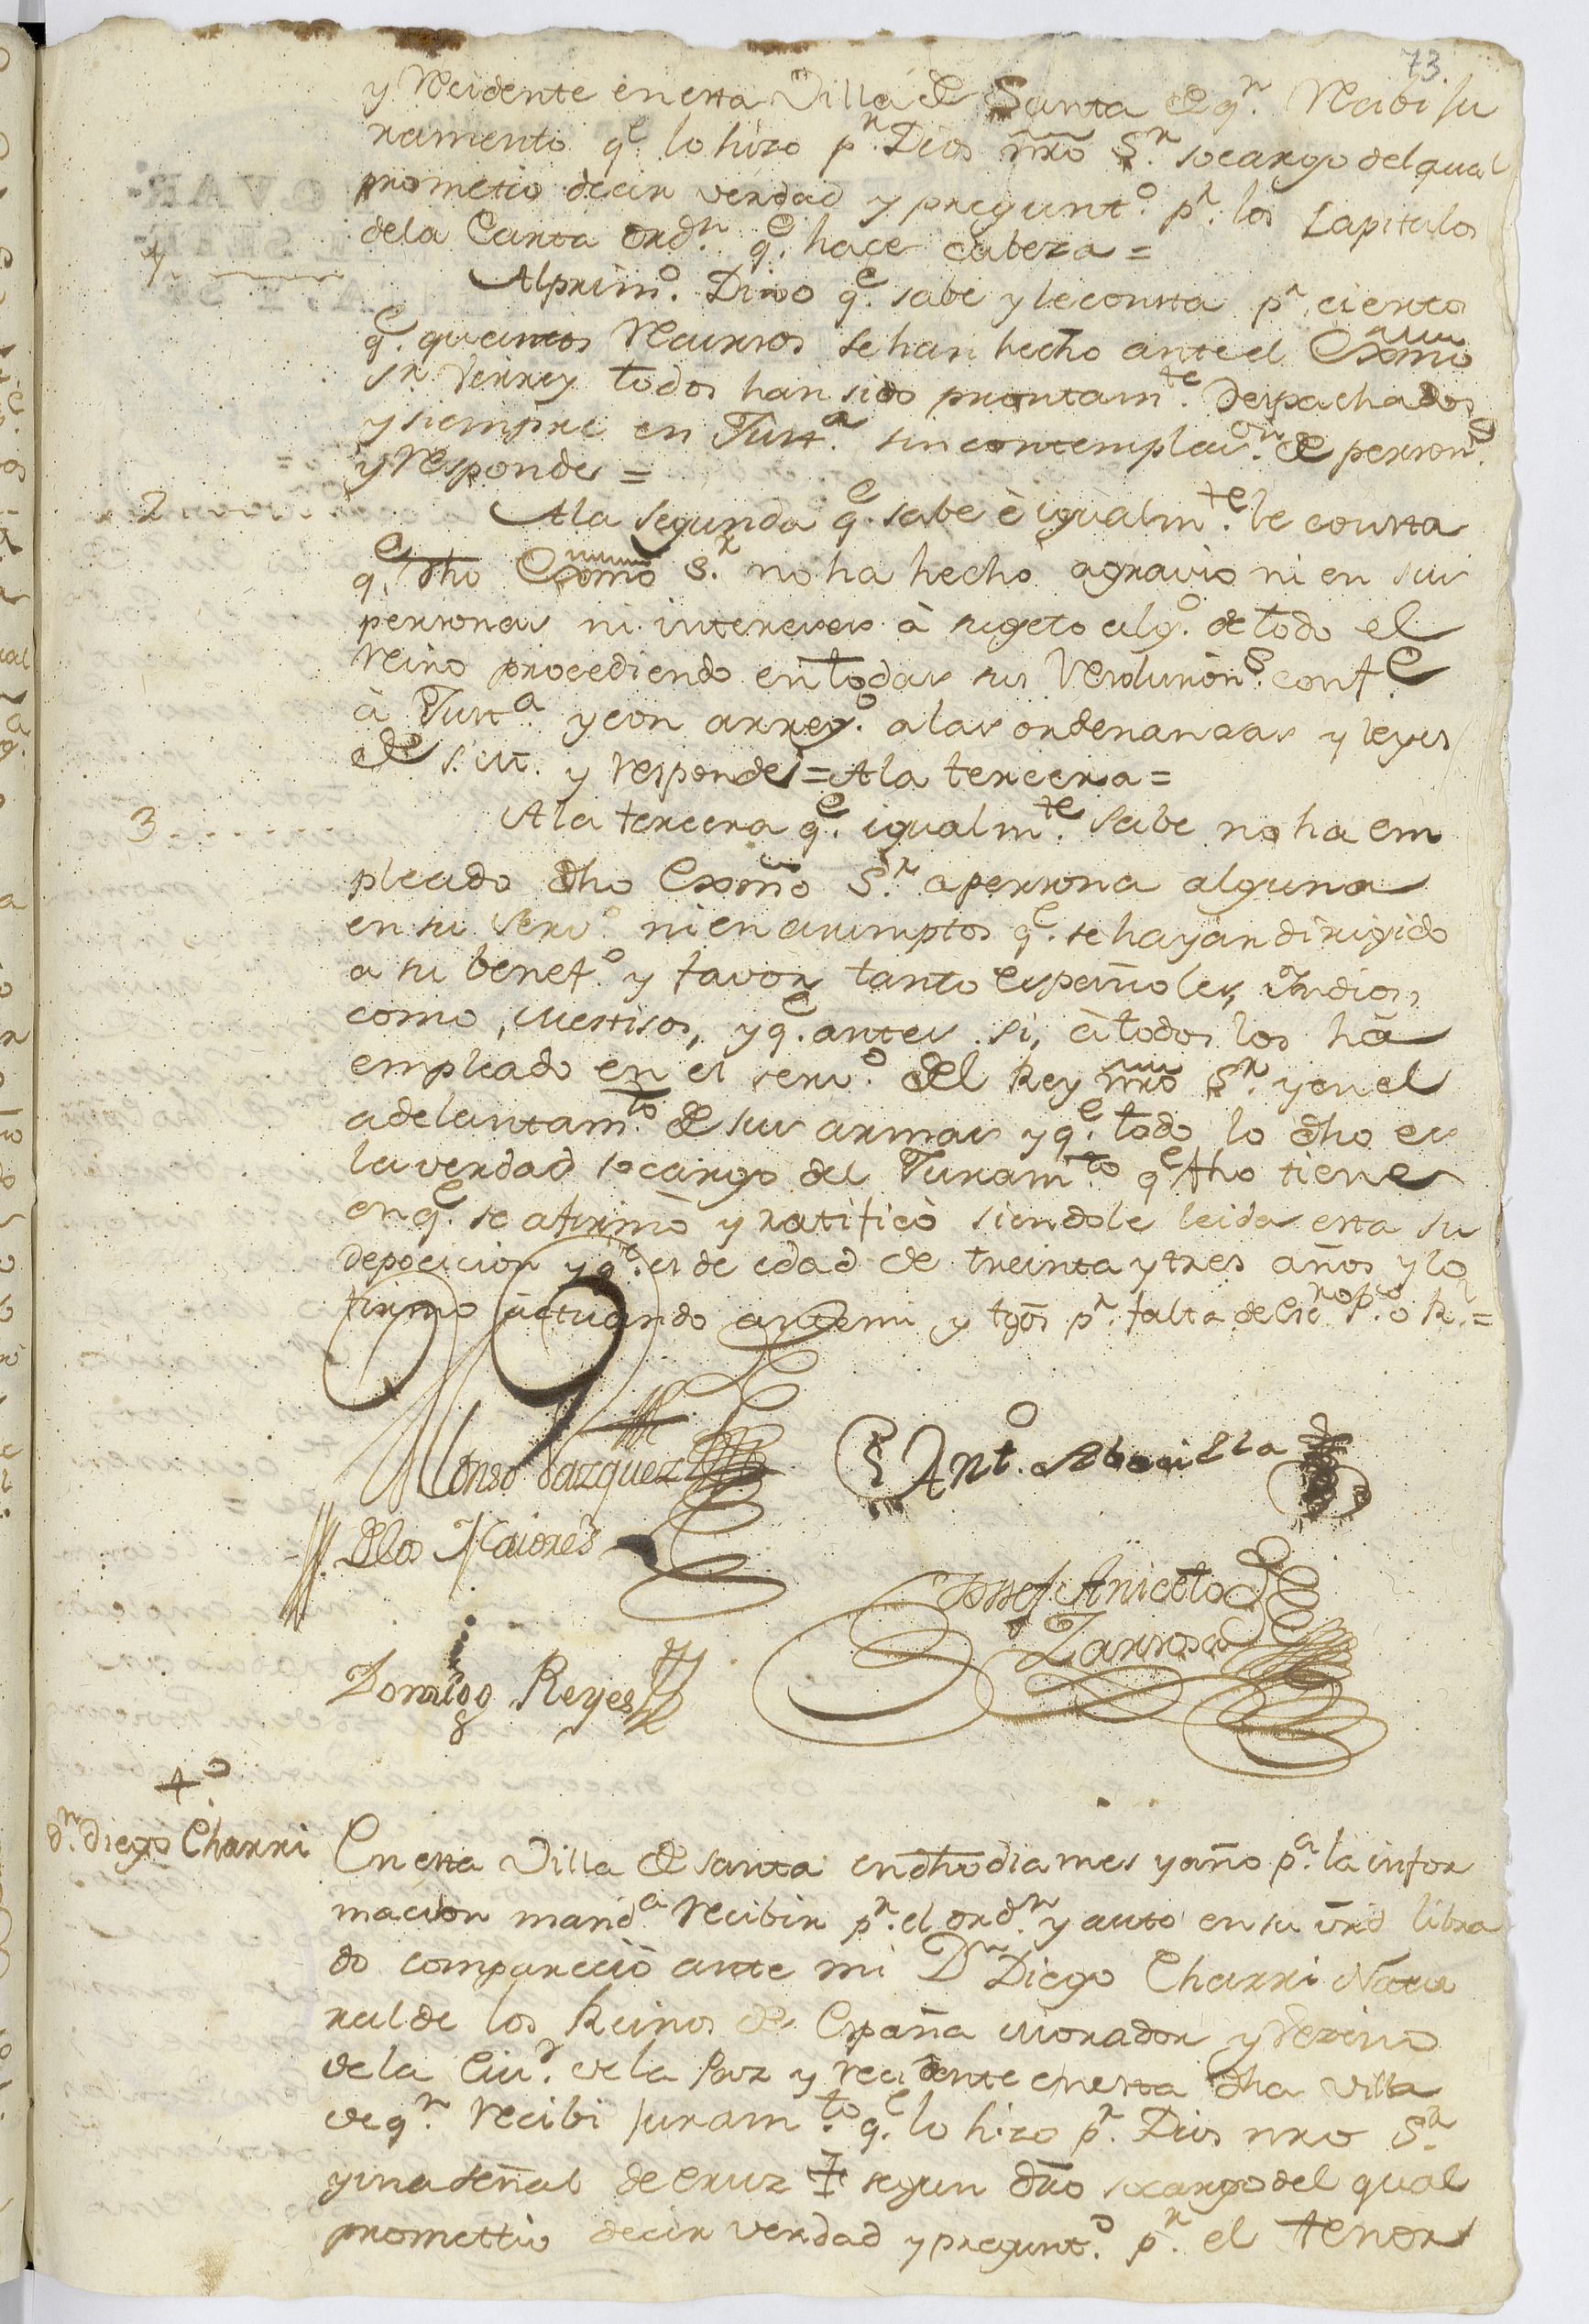 73.
y recidente en esta Villa de Santa de qn. recibi ju
ramento qe. lo hizo pr. Dios nro Sr. socargo del qual
prometio decir verdad y pregunto. pr. los Capitulos
dela Carta ordn. qe. hace cabeza =
1
Al primo. Dixo qe. sabe y le consta pr. cierto
qe. quantos recursos se han hecho ante el Exmo
Sr. Virrey todos han sido prontamte. Despachados
y siempre en Justa. sin contemplaon. de person
y responde =
2
Ala segunda qe. sabe è igualmte. le consta
qe. dho Exmo Sr. no ha hecho agravio ni en sus
personas ni intereses à sugeto algo. de todo el
reino procediendo en todas sus resolucions. confe
à Justa. y con arrego. alas ordenanzas y leyes
de S.M. y responde = Ala tercera =
3
Ala tercera qe. igualmte. sabe no ha em
pleado dho Exmo Sr. a persona alguna
en su servo. ni en asumptos qe. se hayan dirigido
a su benefo. y favor tanto españoles, Indios,
como, Mestisos, y qe. antes si, à todos los hà
empleado en el servo. del Rey nro Sr. y en el
adelantamto. de sus armas y qe. todo lo dho es
la verdad socargo del Juramto qe fho tiene
en qe. se afirmò y ratificò siendole leida esta su
deposicion y qe. es de edad de treinta y tres años y lo
firmo actuando ante mi y tgos pr. falta de Esno pco o Rl. =
Alonso Vazquez
Anto. Sevilla
Dlos Maiores
Jossef Aniceto
Larrosa
Domingo Reyes
4o
dn. diego Charri
En esta Villa de santa en dho dia mes y año pa. la infor
macion manda. recibir pr. el ordn. y auto en su vrd libra
do compareciò ante mi Dn Diego Charri Natu
ral de los Reinos de España morador y vezino
de la Ciud. de la Paz y recidente en esta dha villa
de qn. recibi juramto. qe. lo hizo pr. Dios nro Sr.
y una señal de cruz segun dro socargo del qual
promettio decir verdad y pregunto. pr. el tenor